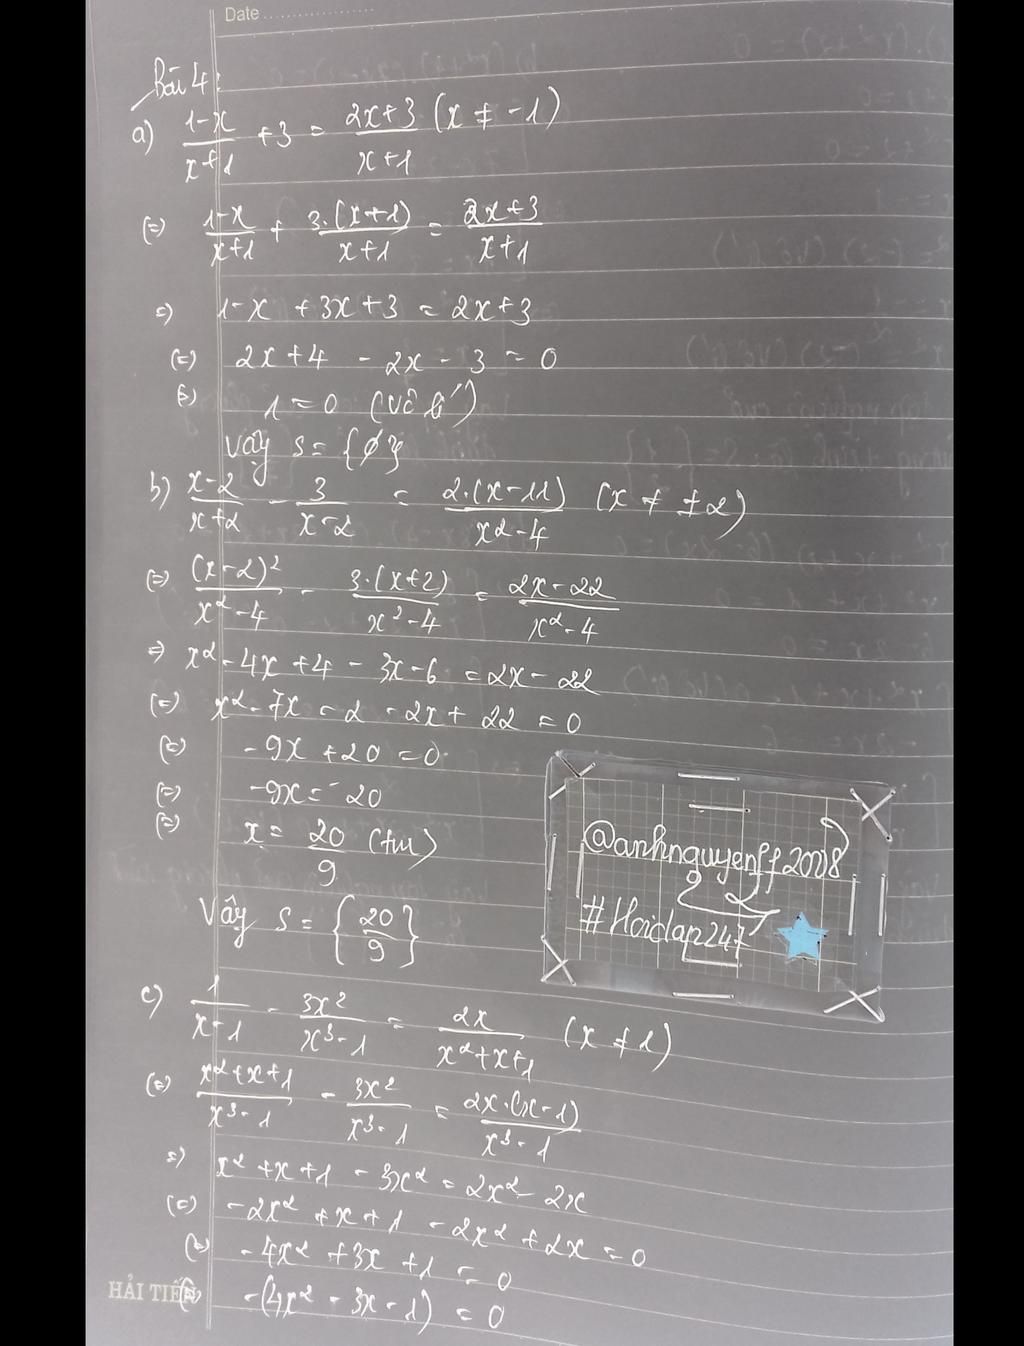 Date
Bài 4:
a) \frac{1-x}{x+1} + 3 = \frac{2x+3}{x+1} (x ≠ -1)
(=) \frac{1-x}{x+1} + \frac{3.(x+1)}{x+1} = \frac{2x+3}{x+1}
=) 1-x + 3x+3 = 2x+3
(=) 2x+4 - 2x - 3 = 0
(=) 1 = 0 (vô lí)
Vậy S = {ø}
b) \frac{x-2}{x+2} - \frac{3}{x-2} = \frac{2.(x-11)}{x²-4} (x ≠ ±2)
(=) \frac{(x-2)²}{x²-4} - \frac{3.(x+2)}{x²-4} = \frac{2x-22}{x²-4}
=) x²-4x+4 - 3x-6 = 2x-22
(=) x²-7x-2-2x+22 = 0
(=) -9x+20 = 0
(=) -9x = -20
(=) x = \frac{20}{9} (tm)
Vậy S = {\frac{20}{9}}
@anhnguyenff2008
#Hoidap247
c) \frac{1}{x-1} - \frac{3x²}{x³-1} = \frac{2x}{x²+x+1} (x ≠ 1)
(=) \frac{x²+x+1}{x³-1} - \frac{3x²}{x³-1} = \frac{2x.(x-1)}{x³-1}
=) x²+x+1 - 3x² = 2x²-2x
(=) -2x²+x+1-2x²+2x = 0
(=) -4x²+3x+1 = 0
HẢI TIẾN (=) -(4x²-3x-1) = 0